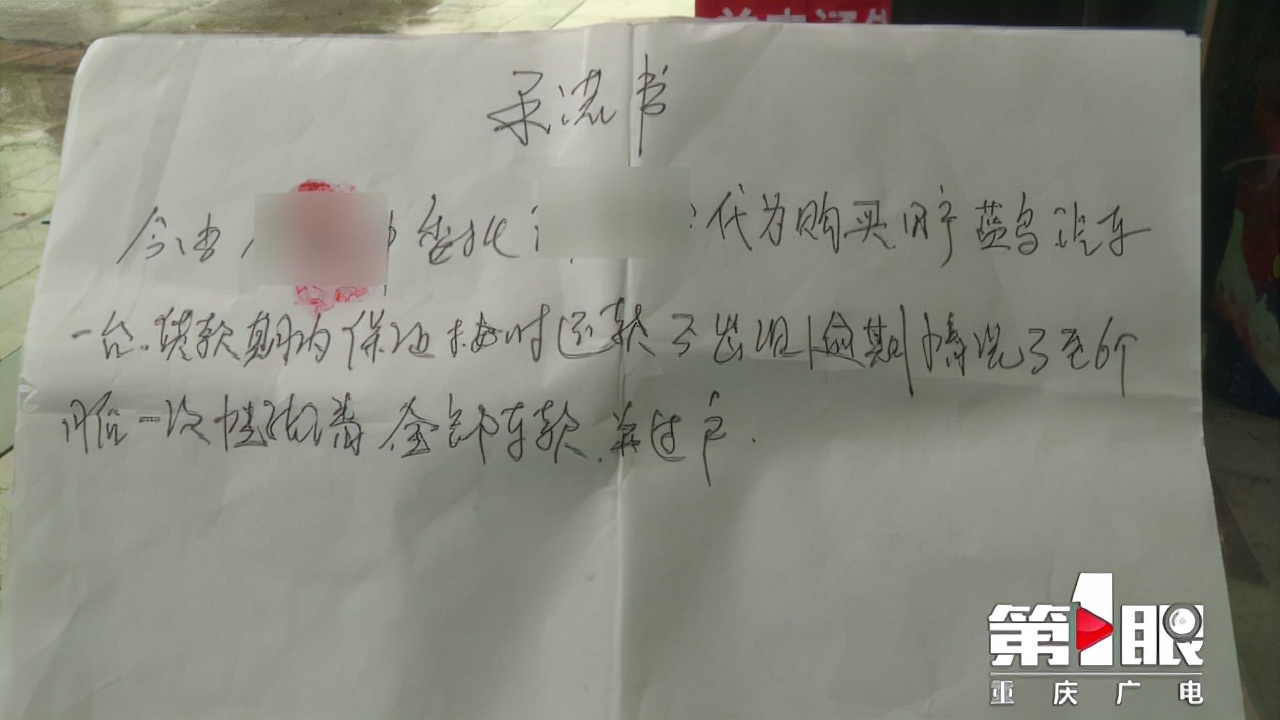 承诺书
今由 委托 代为购买日产蓝鸟汽车
一台.贷款期内保证按时还款不出现逾期情况
后一次性结清全部车款.并过户.
第1眼
重庆广电